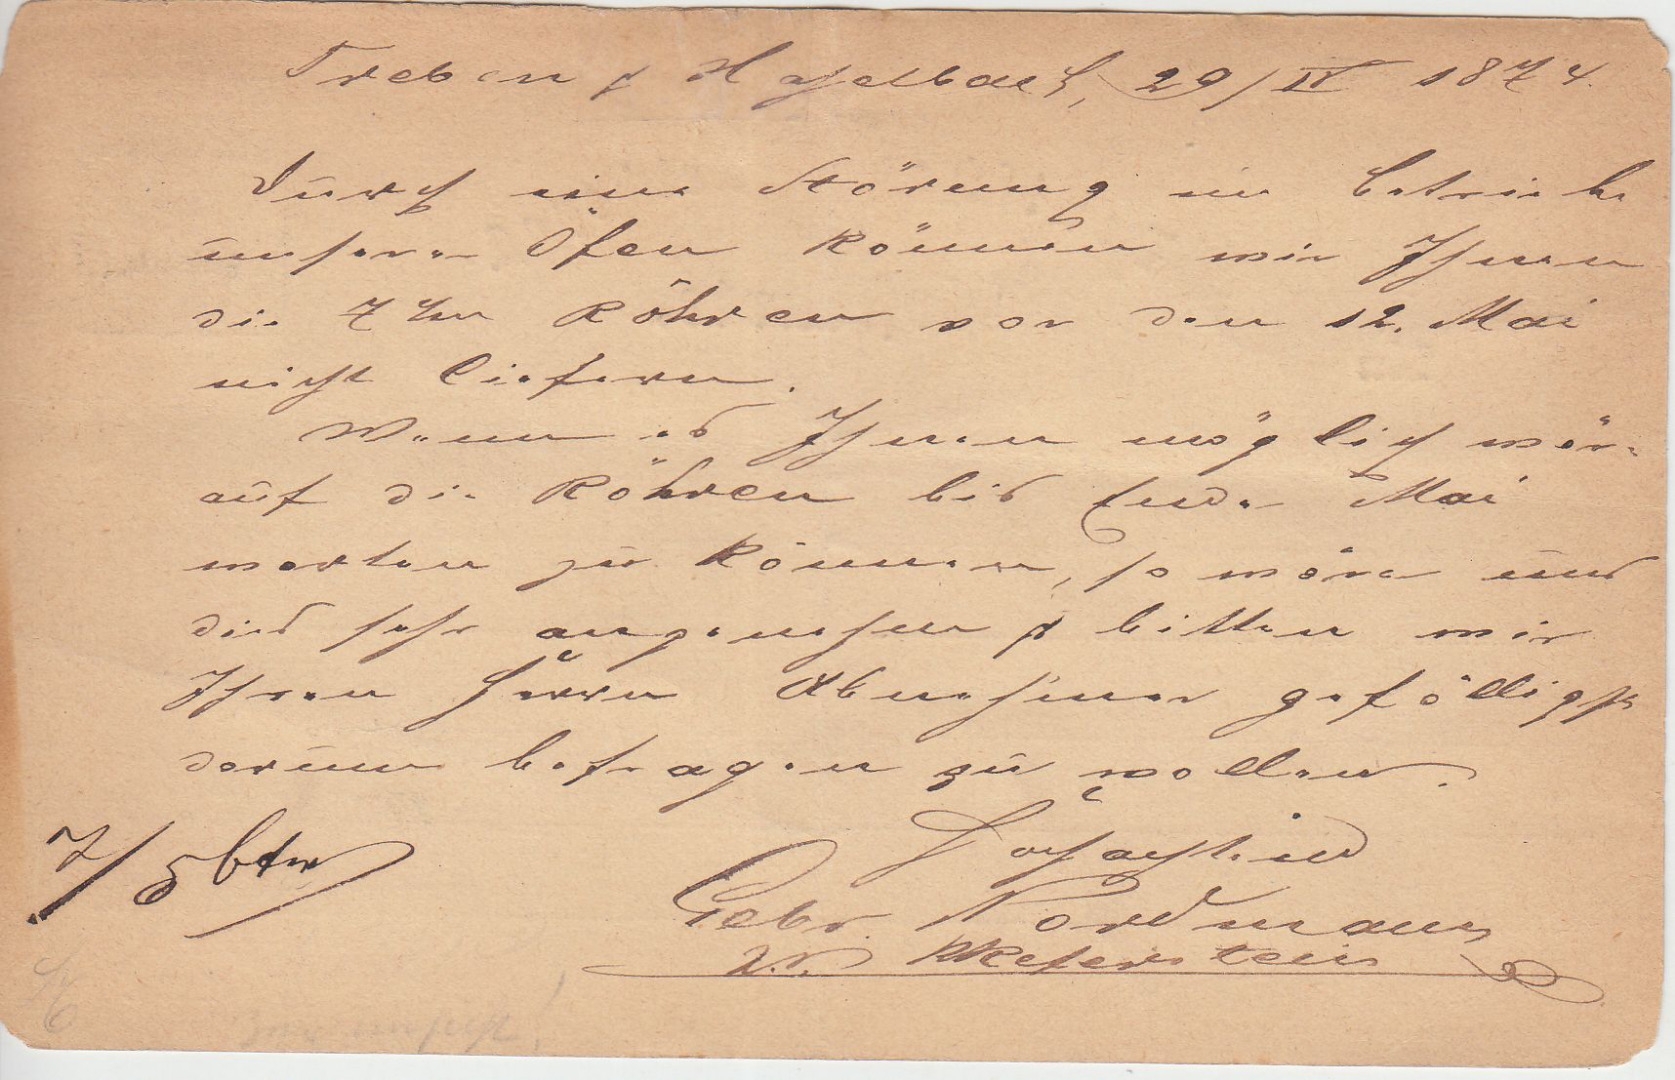 Treben & Haselbach, 29/IV 1874.
Durch eine Störung im Betriebe
unserer Öfen können wir Ihnen
die 7 Röhren vor den 12. Mai
nicht liefern.
Wenn es Ihnen möglich wäre
auf die Röhren bis Ende Mai
warten zu können, so wäre uns
dies sehr angenehm & bitten wir
Ihren Herrn Abnehmer gefälligst
darum befragen zu wollen.
Hochachtend
Gebr. Nordmann
Keferstein
7/5